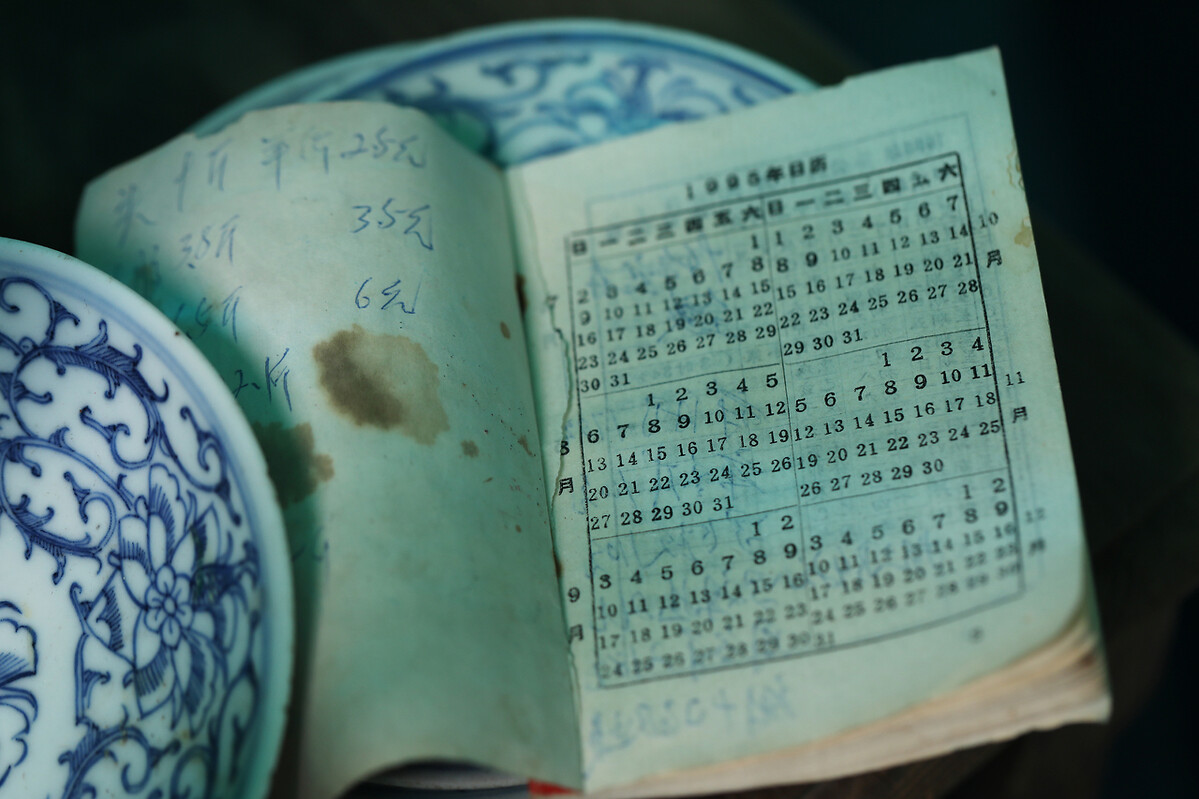 十斤 半斤 2.5元
3.8斤 3.5元
6元
斤
1995年日历
日 一 二 三 四 五 六 日 一 二 三 四 五 六
7
1
2 3 4 5 6 7 8
9 10 11 12 13 14 15
16 17 18 19 20 21 22
23 24 25 26 27 28 29
30 31
10月
1 2 3 4 5 6 7
8 9 10 11 12 13 14
15 16 17 18 19 20 21
22 23 24 25 26 27 28
29 30 31
8月
1 2 3 4 5
6 7 8 9 10 11 12
13 14 15 16 17 18 19
20 21 22 23 24 25 26
27 28 29 30 31
11月
1 2 3 4
5 6 7 8 9 10 11
12 13 14 15 16 17 18
19 20 21 22 23 24 25
26 27 28 29 30
9月
1 2
3 4 5 6 7 8 9
10 11 12 13 14 15 16
17 18 19 20 21 22 23
24 25 26 27 28 29 30
12月
1 2
3 4 5 6 7 8 9
10 11 12 13 14 15 16
17 18 19 20 21 22 23
24 25 26 27 28 29 30
31